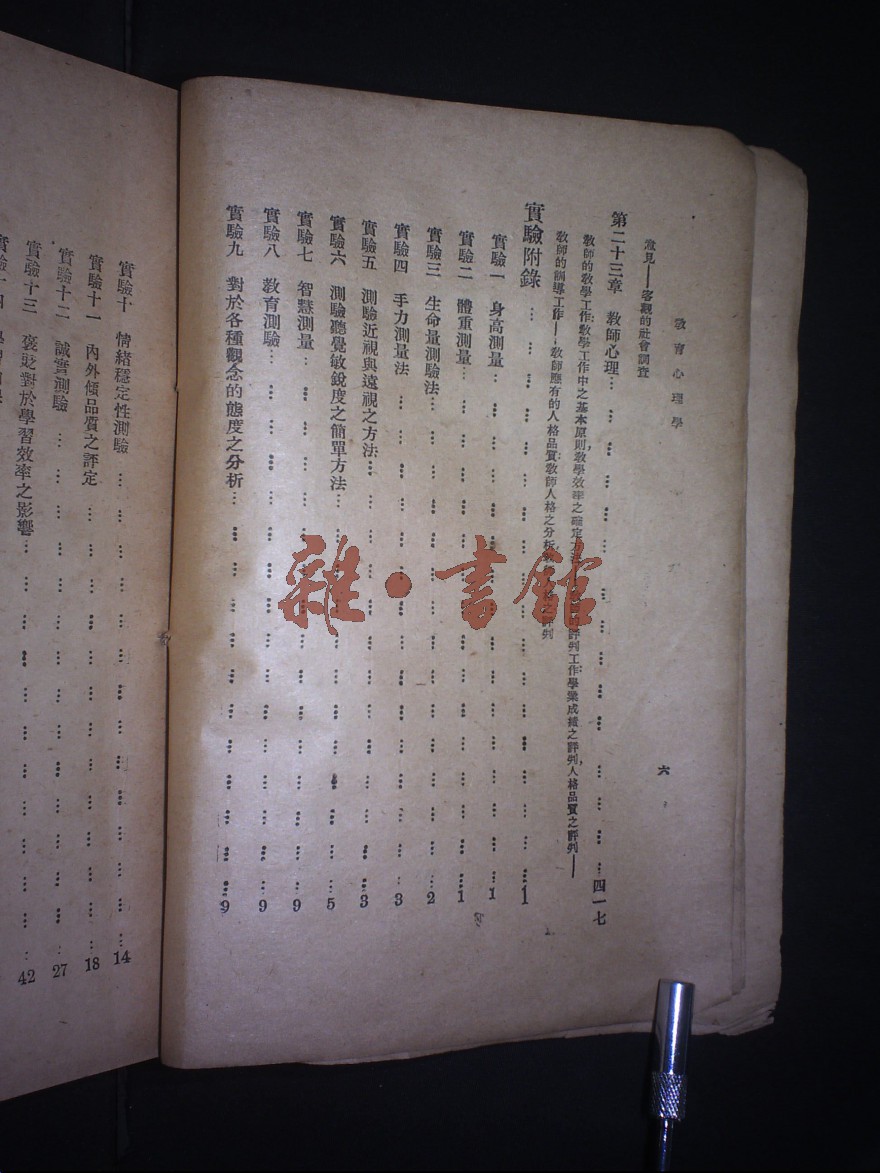 教育心理學
六
意見——客觀的社會調查
第二十三章 教師心理………四一七
教師的教學工作:教學工作中之基本原則,教學效率之確定方法——評判工作:學業成績之評判,人格品質之評判——
教師的訓導工作——教師應有的人格品質:教師人格之分析,評判
實驗附錄………1
實驗一 身高測量………1
實驗二 體重測量………1
實驗三 生命量測驗法………2
實驗四 手力測量法………3
實驗五 測驗近視與遠視之方法………3
實驗六 測驗聽覺敏銳度之簡單方法………5
實驗七 智慧測量………9
實驗八 教育測驗………9
實驗九 對於各種觀念的態度之分析………9
實驗十 情緒穩定性測驗………14
實驗十一 內外傾品質之評定………18
實驗十二 誠實測驗………27
實驗十三 褒貶對於學習效率之影響………42
雜·書館